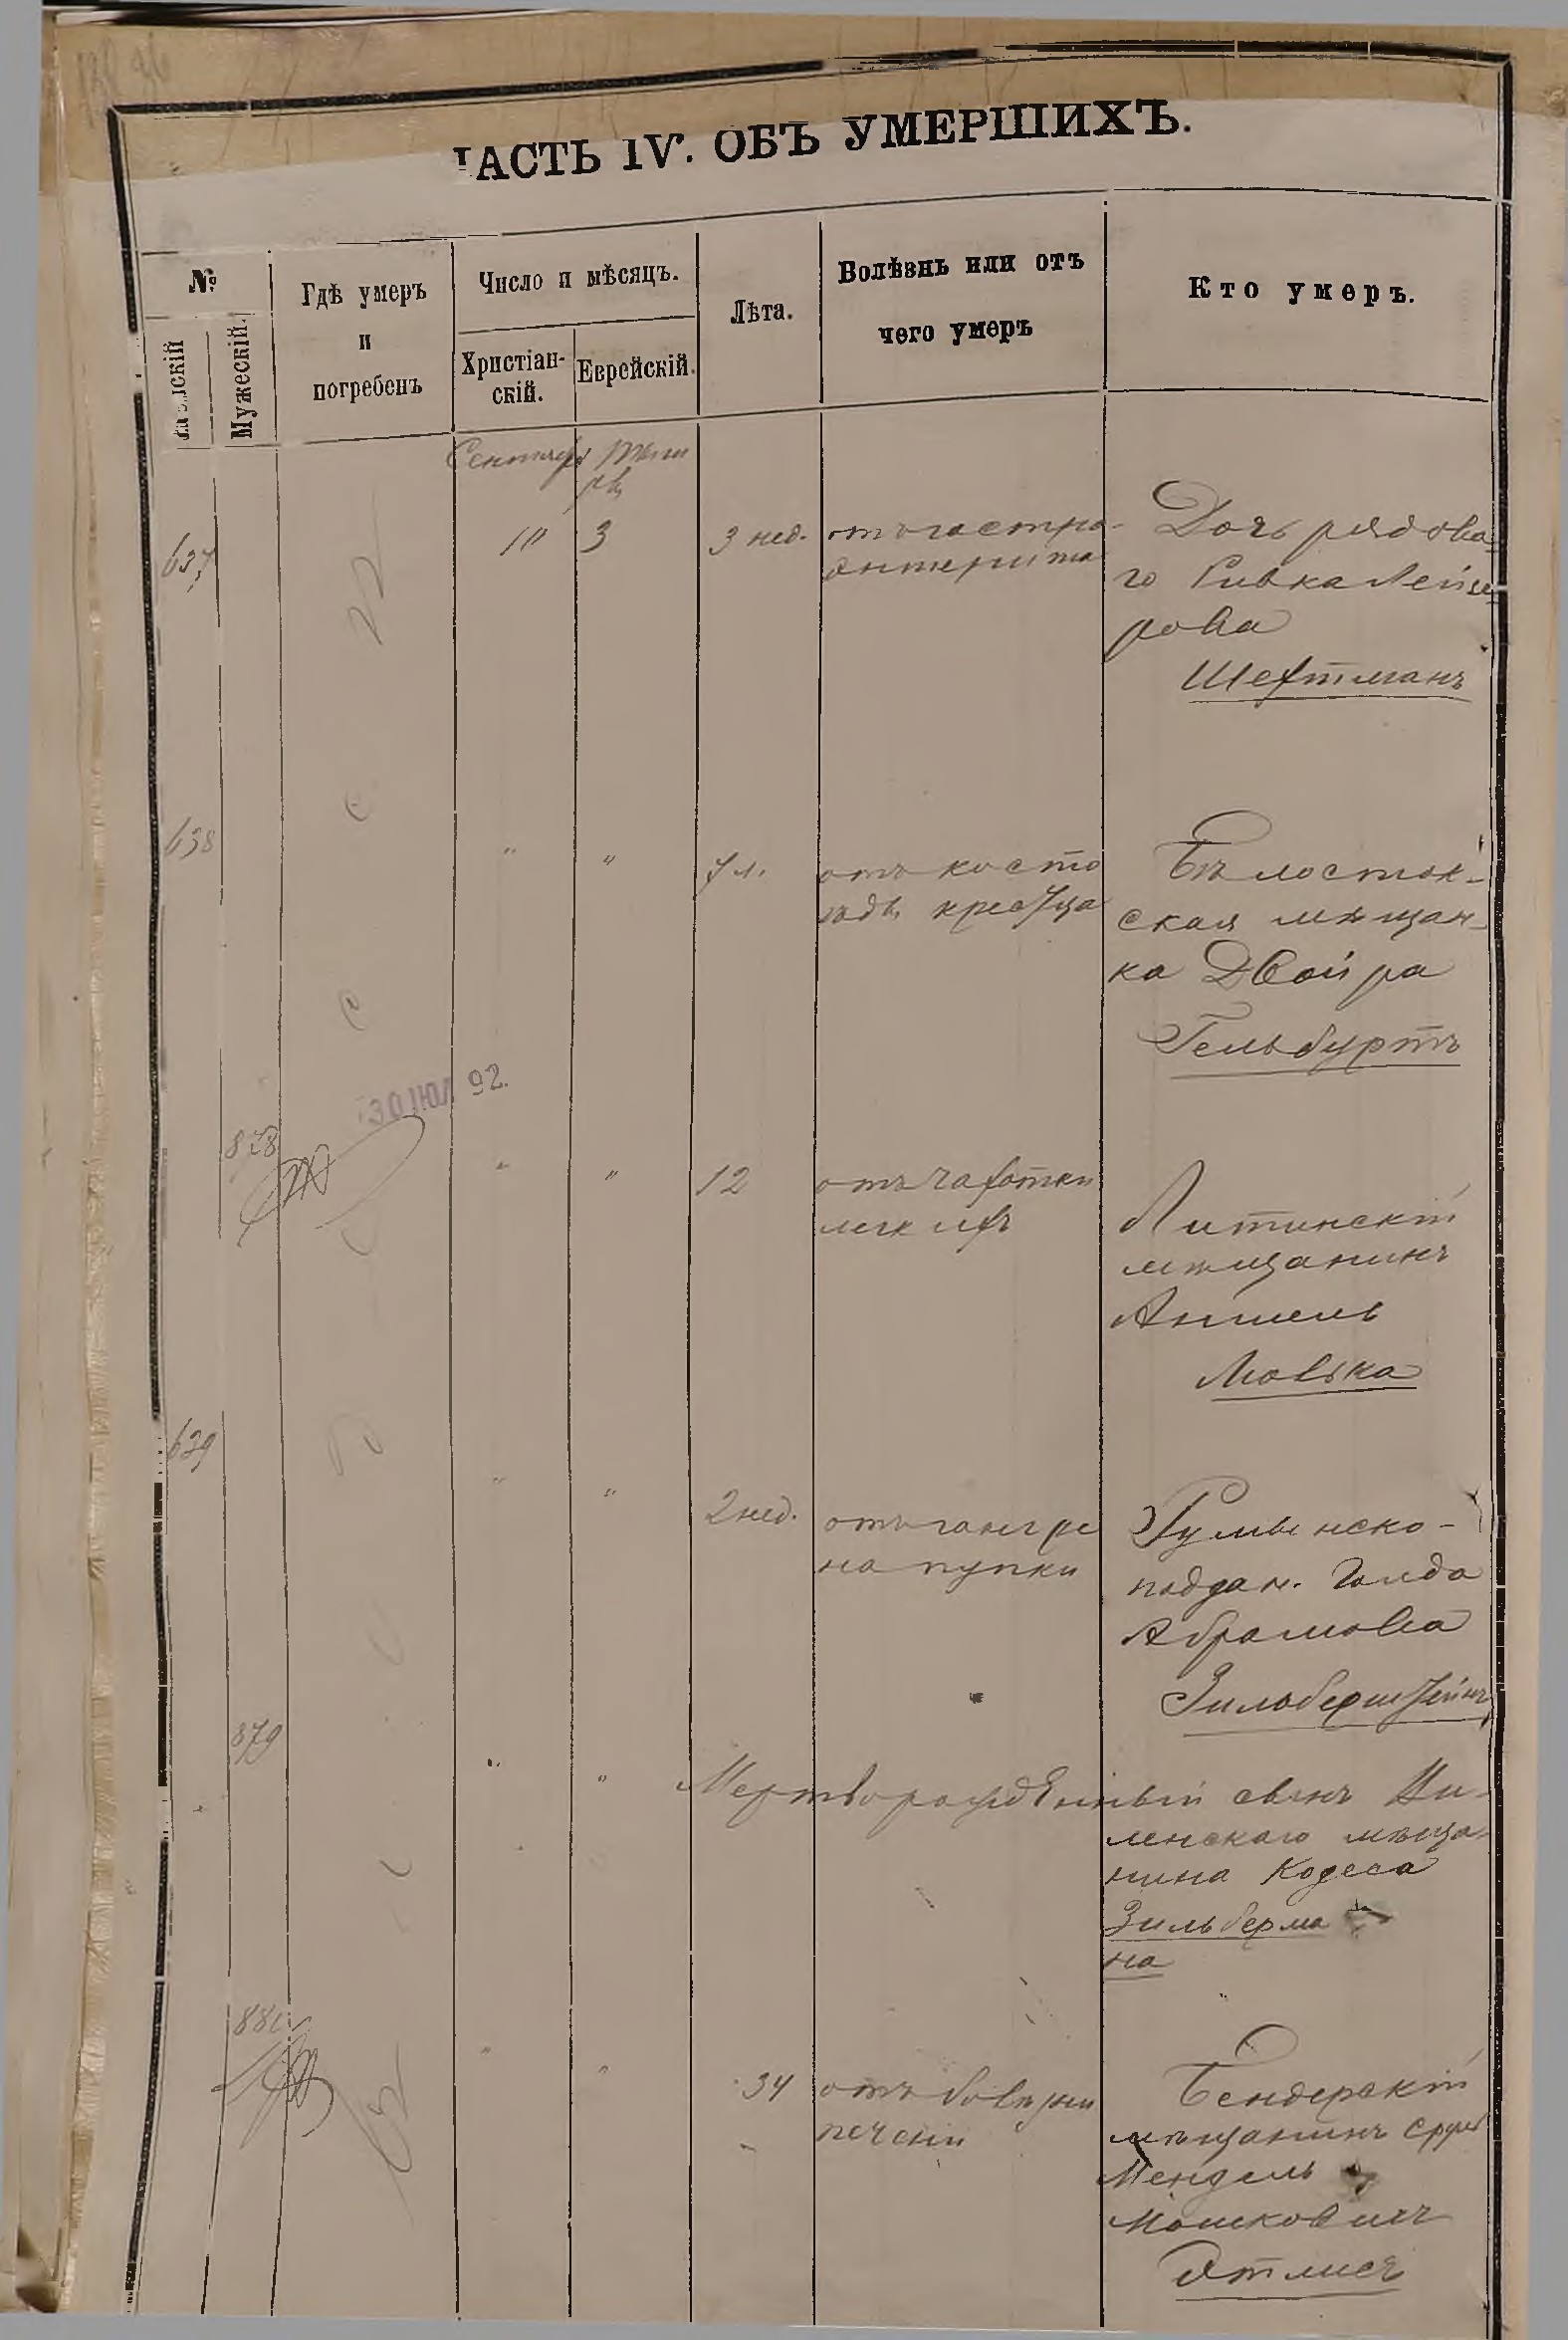 ЧАСТЬ IV. ОБЪ УМЕРШИХЪ.
№
Женскій
Мужескій.
Гдѣ умеръ
и
погребенъ
Число и мѣсяцъ.
Христіан-
скій.
Еврейскій.
Лѣта.
Болѣзнь или отъ
чего умеръ
Кто умеръ.
Сентября Тиш
ри
637 10 3 3 нед. отъ гастро-
энтерита
Дочь рядова-
го Ривка Лейзе-
рова
Шехтманъ
638 " " 7 л. отъ косто
ѣды крестца
Бѣлосток-
ская мѣщан-
ка Двойра
Гельбуртъ
30 ІЮЛ 92.
878 " " 12 отъ чахотки
легкихъ
Литинскій
мѣщанинъ
Аншель
Мовшка
639 " " 2 нед. отъ гангре
на пупки
Румынско-
поддан. Голда
Абрамова
Зильберштейнъ
879 " " Мертворожденный сынъ Ви-
ленскаго мѣща-
нина Кодеса
Зильберма
на
880 " " 34 отъ болѣзни
печени
Бендерскій
мѣщанинъ Сруль
Мендель
Мошковичъ